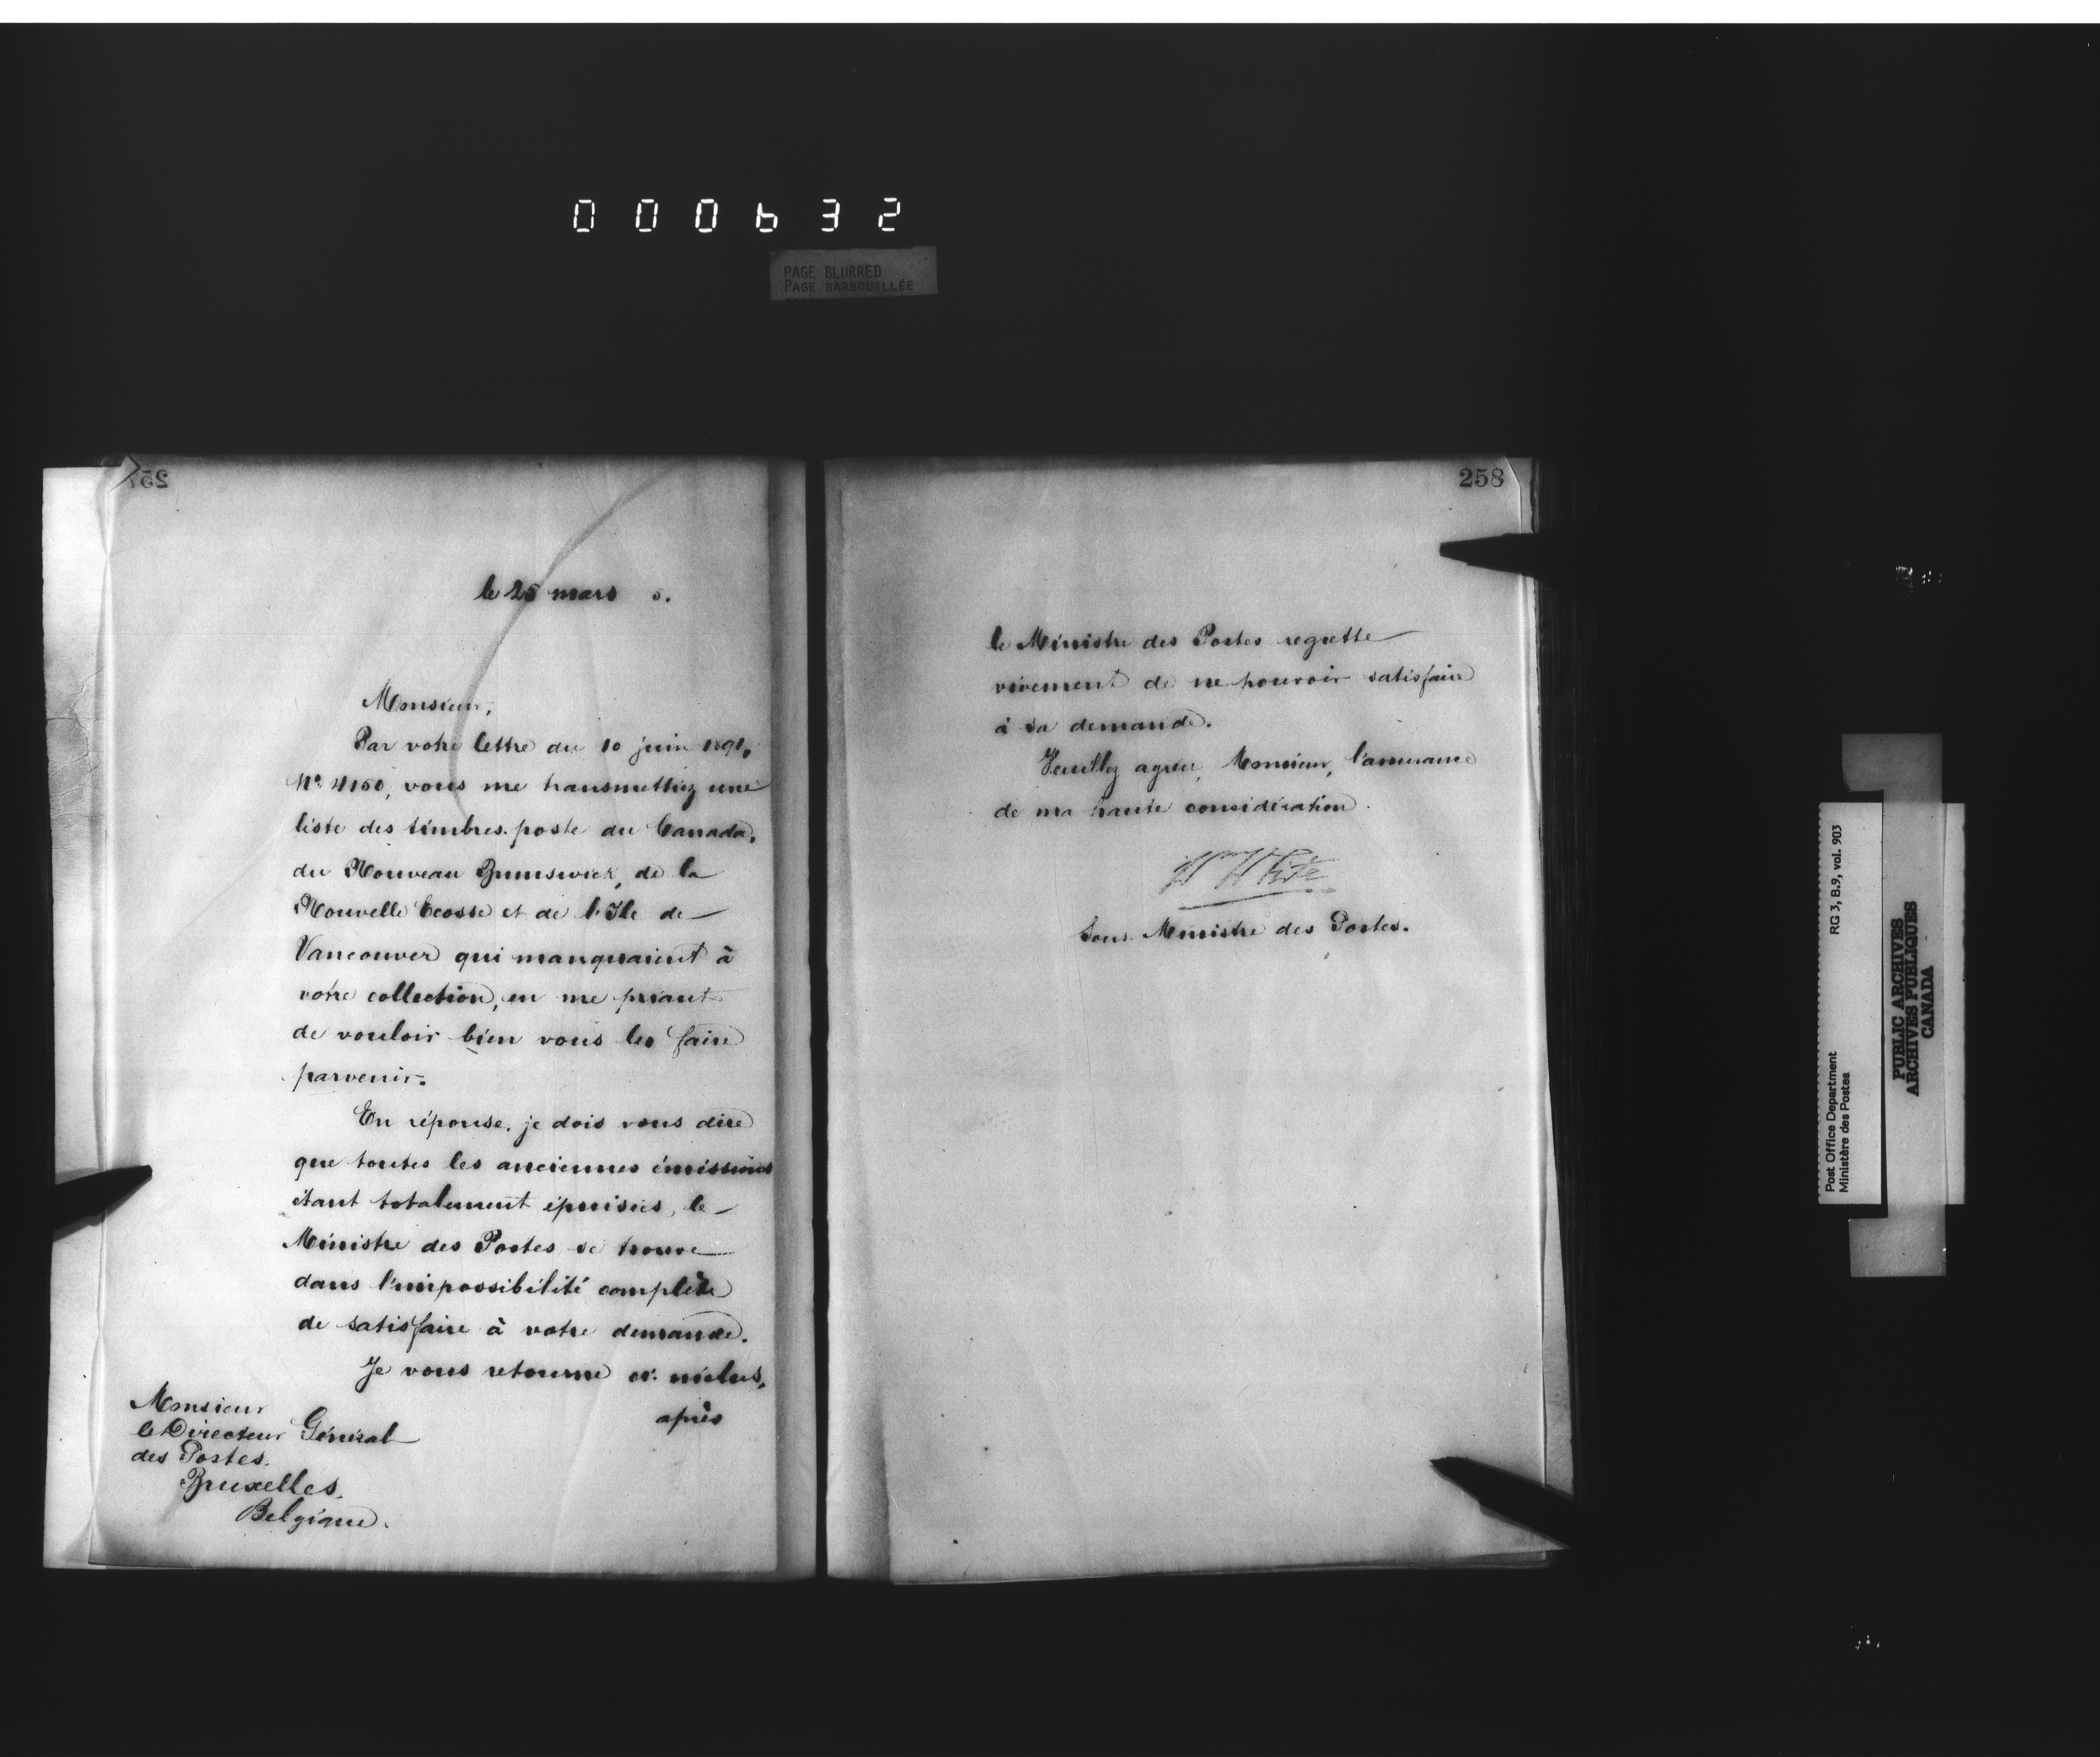 000632
PAGE BLURRED
PAGE BARBOUILLÉE
257
le 25 mars 5.
Monsieur,
Par votre lettre du 10 juin 1891,
No. 4150, vous me transmettiez une
liste des timbres-poste du Canada,
du Nouveau Brunswick, de la
Nouvelle Ecosse et de l'Ile de
Vancouver qui manquaient à
votre collection, en me priant
de vouloir bien vous les faire
parvenir.
En réponse, je dois vous dire
que toutes les anciennes émissions
étant totalement épuisées, le
Ministre des Postes se trouve
dans l'impossibilité complète
de satisfaire à votre demande.
Je vous retourne ci-inclus,
après
Monsieur
le Directeur Général
des Postes.
Bruxelles.
Belgique.
258
le Ministre des Postes regrette
vivement de ne pouvoir satisfaire
à sa demande.
Veuillez agréer, Monsieur, l'assurance
de ma haute considération.
W White
Sous-Ministre des Postes.
Post Office Department
Ministère des Postes
RG 3, B.9, vol. 903
PUBLIC ARCHIVES
ARCHIVES PUBLIQUES
CANADA